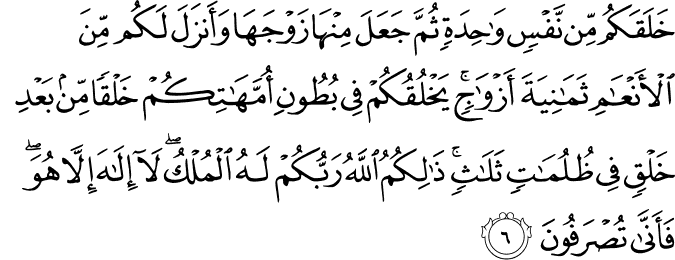 خَلَقَكُم مِّن نَّفۡسٖ وَٰحِدَةٖ ثُمَّ جَعَلَ مِنۡهَا زَوۡجَهَا وَأَنزَلَ لَكُم مِّنَ
ٱلۡأَنۡعَٰمِ ثَمَٰنِيَةَ أَزۡوَٰجٖۚ يَخۡلُقُكُمۡ فِي بُطُونِ أُمَّهَٰتِكُمۡ خَلۡقٗا مِّنۢ بَعۡدِ
خَلۡقٖ فِي ظُلُمَٰتٖ ثَلَٰثٖۚ ذَٰلِكُمُ ٱللَّهُ رَبُّكُمۡ لَهُ ٱلۡمُلۡكُۖ لَآ إِلَٰهَ إِلَّا هُوَۖ
فَأَنَّىٰ تُصۡرَفُونَ ٦